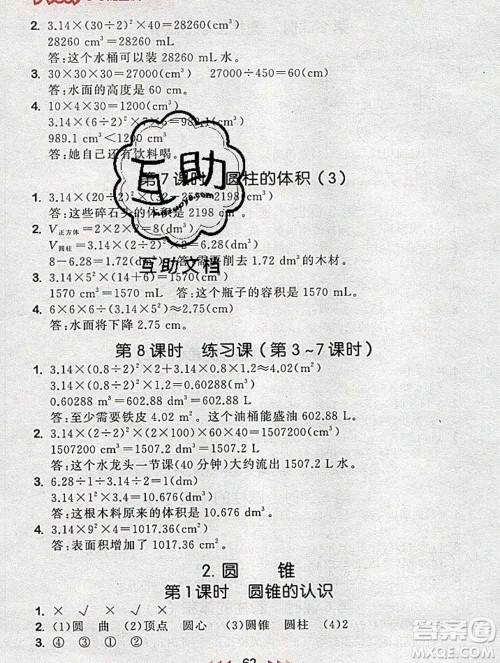 3.14×(30÷2)²×40=28260(cm³)
28260 cm³=28260 mL
答:这个水桶可以装水 28260 mL
3. 30×30×30=27000(cm³) 27000÷450=60(cm)
答:水面的高度是 60 cm。
4. 10×4×30=1200(cm³)
3.14×(6÷2)²×
989.1 cm³<1200 cm³
答:她自己还有饮料喝。
第7课时 圆柱的体积(3)
1. 3.14×(20÷2)²×(32-25)=2198(cm³)
答:这些碎石头的体积是 2198 cm³。
2. V正方体=2×2×2=8(dm³)
V圆柱=3.14×(2÷2)²×2=6.28(dm³)
8-6.28=1.72(dm³) 答:需要削去 1.72 dm³的木材。
3. 3.14×5²×(14+6)=1570(cm³)
1570 cm³=1570 mL 答:这个瓶子的容积是 1570 mL。
4. 6×6×6÷(3.14×5²)≈2.75(cm)
答:水面将下降 2.75 cm。
第8课时 练习课(第3~7课时)
1. 3.14×(0.8÷2)²×2+3.14×0.8×1.2≈4.02(m²)
3.14×(0.8÷2)²×1.2=0.60288(m³)
0.60288 m³=602.88 L
答:至少需要铁皮 4.02 m²,这个油桶能盛油 602.88 L。
2. 3.14×(2÷2)²×200×60×40=1507200(cm³)
1507200 cm³=1507.2 L
答:这个水龙头一节课(40 分钟)大约流出 1507.2 L 水。
3. 6.28÷1=6.28(dm) 6.28÷3.14÷2=1(dm)
3.14×1²×3.4=10.676(dm³)
答:这根木料原来的体积是 10.676 dm³。
4. 3.14×9²×4=1017.36(cm²)
答:表面积增加了 1017.36 cm²。
2. 圆 锥
第1课时 圆锥的认识
1. × √ × √ ×
2. (1)圆 曲 (2)顶点 圆心 (3)圆锥 圆柱 (4)2
3. ④ ① ② ③
62
互助
互助文档
答案圈